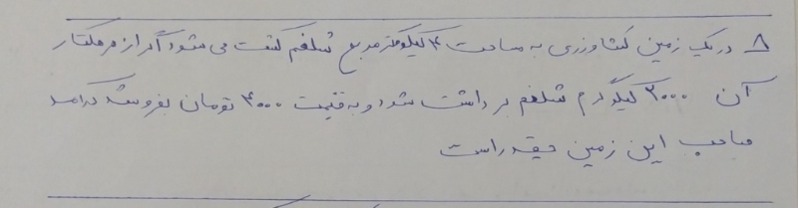 ۸ در یک زمین کشاورزی به مساحت ۴ کیلومتر مربع شلغم کشت می شود اگر از هر هکتار
آن ۳۰۰۰ کیلوگرم شلغم برداشت شد و به قیمت ۴۰۰۰ تومان بفروشد درآمد
صاحب این زمین چقدر است